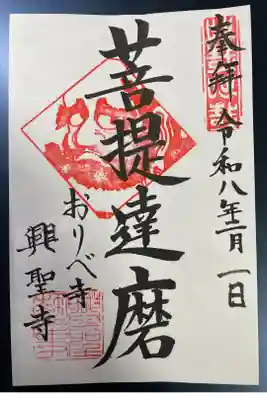 奉拝
令和八年二月一日
菩提達磨
おりべ寺
興聖寺